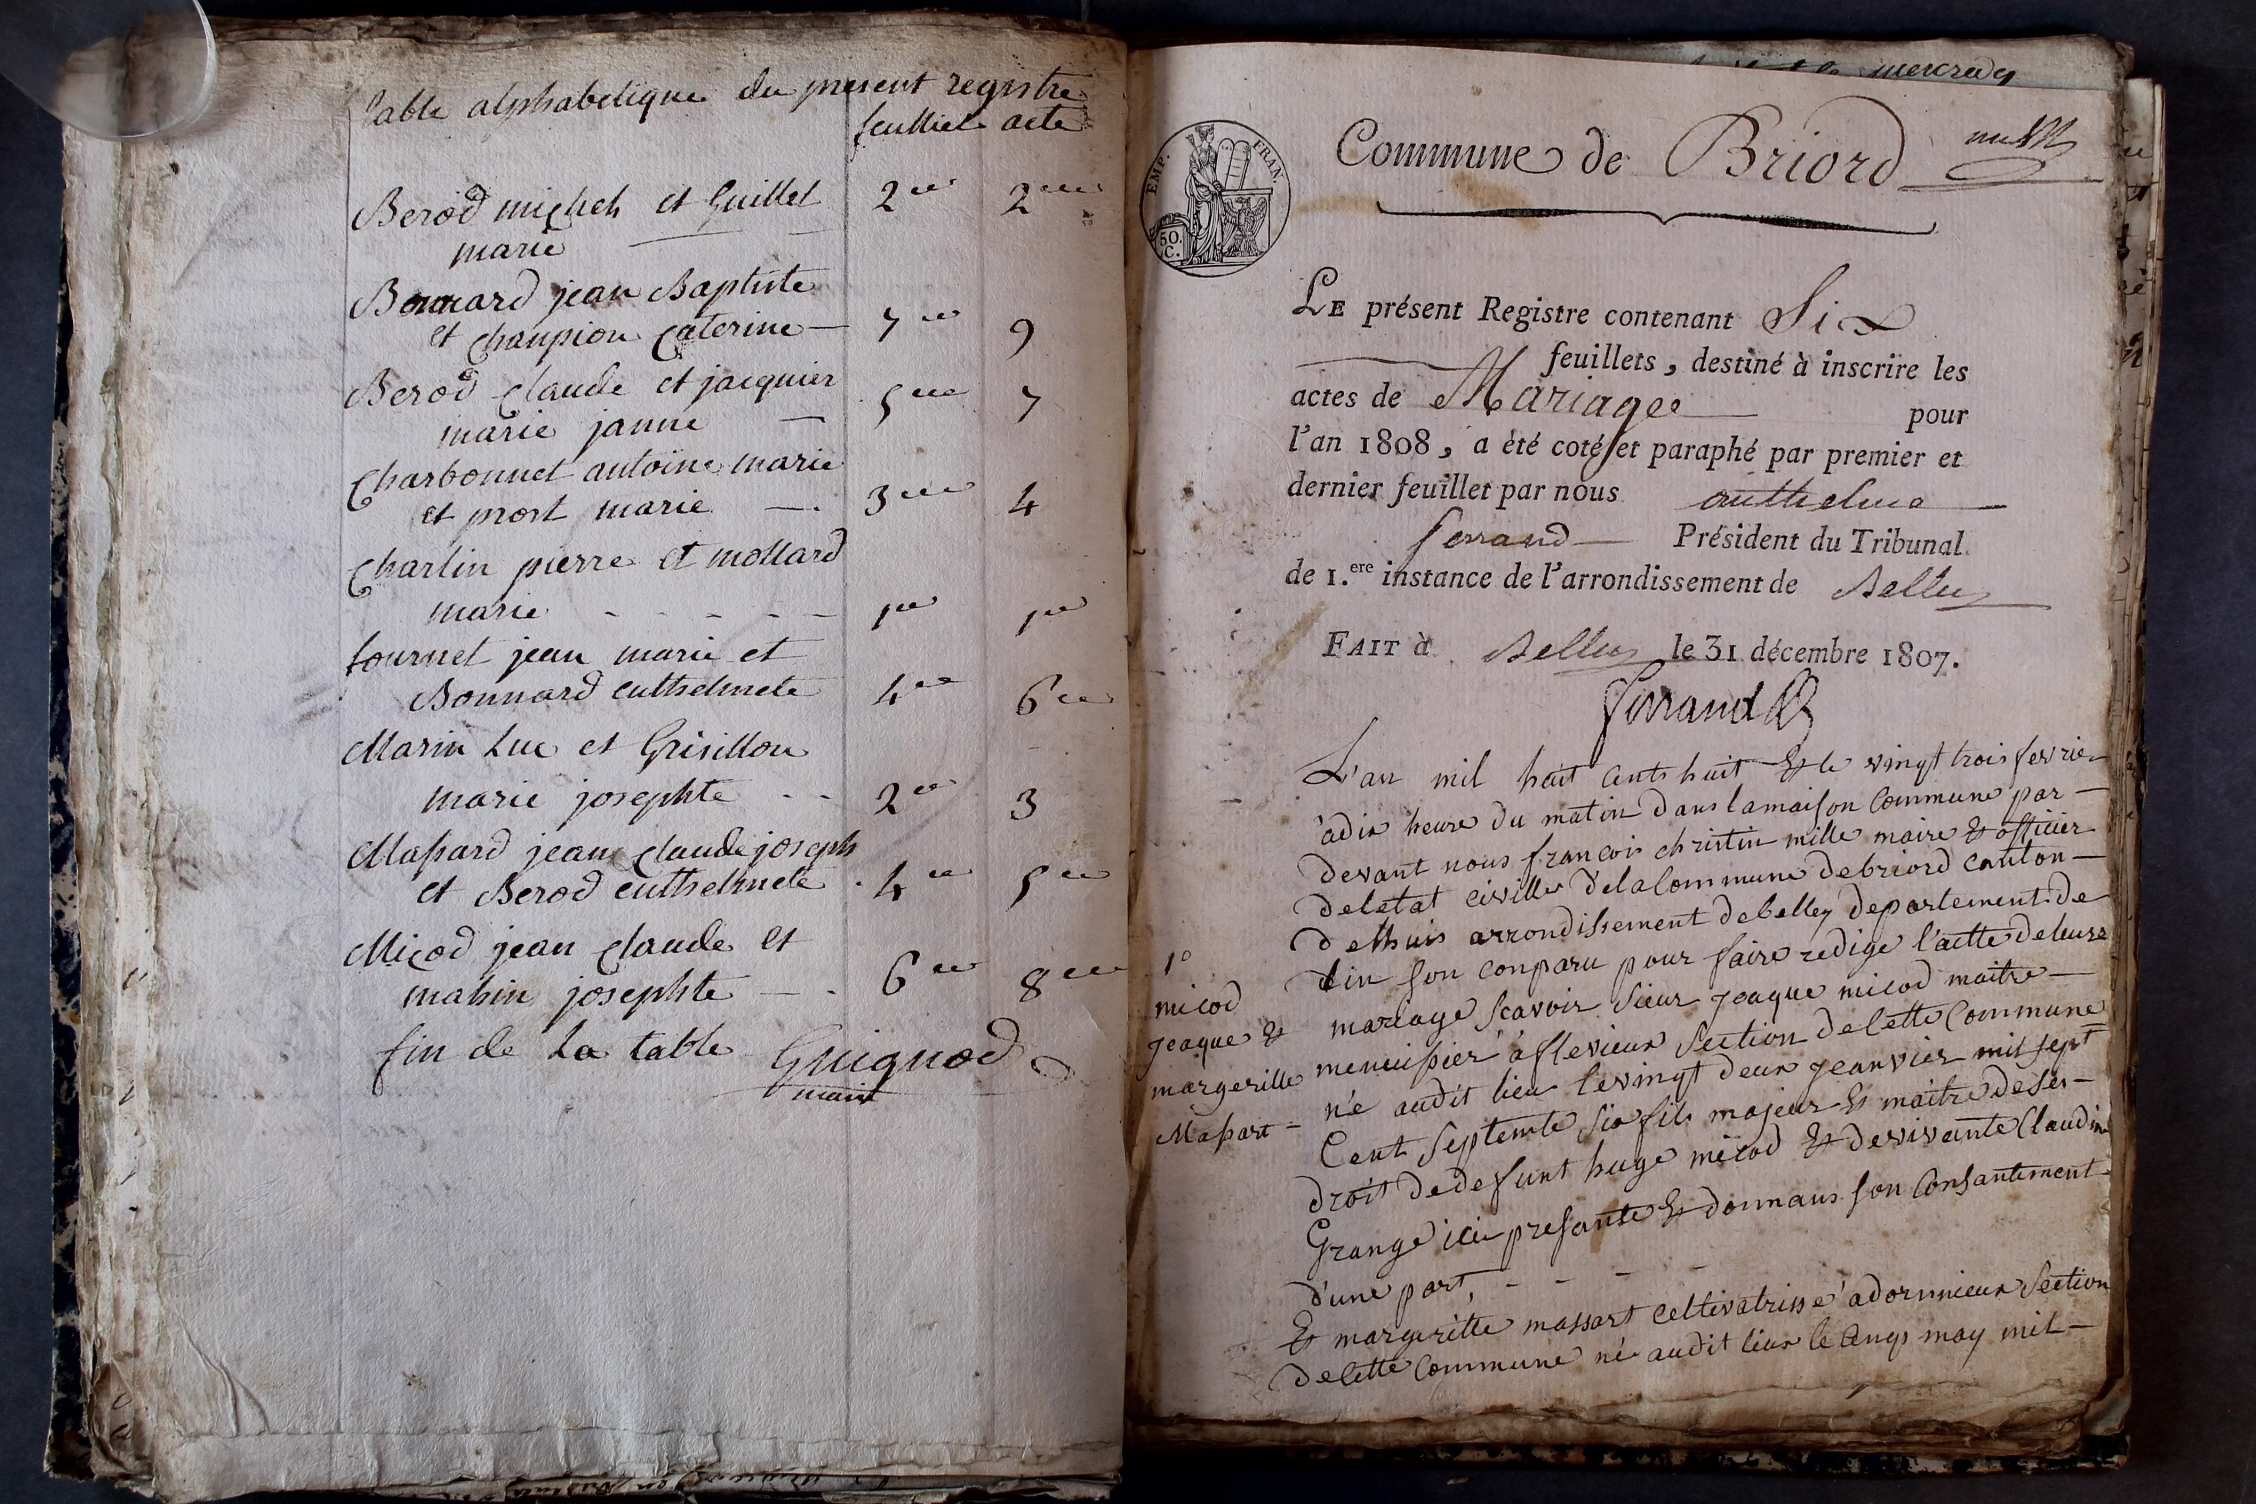 table alphabetique du present registre
feulliet acte
Berod michel et Guillet 2me 2me
marie
Bonnard jean Baptiste
et Chanpion Caterine — 7me 9
Berod Claude et jacquier
marie janne — 5me 7
Charbonnet antoine marie
et prost marie — 3me 4
Charlin pierre et mollard
marie - - - - - 1er 1er
fournet jean marie et
Bonnard enthelmete 4me 6me
Marin Luc et Grisillon
marie josephte - - 2me 3
Massard jean Claude joseph
et Berod enthelmete . 4me 5me
Micod jean Claude et
mahin josephte — . 6me 8me
fin de La table Guignod
maire
mercredy
Commune de Briord
EMP. FRAN.
50.
C.
LE présent Registre contenant Six
feuillets, destiné à inscrire les
actes de Mariage pour
l'an 1808, a été coté et paraphé par premier et
dernier feuillet par nous anthelme
ferrand — Président du Tribunal
de 1.ere instance de l'arrondissement de Belley
FAIT à Belley le 31 décembre 1807.
ferrand
L'an mil huit cents huit & le vingt trois fevrier
adix heure du matin dans lamaison Commune par —
devant nous francois christin mille maire & officier
deletat civille delaCommune debriord canton —
delhuis arrondissement debelley departement de
lin son conparu pour faire redige l'actte deleurs
mariage scavoir sieur Jeaque micod maitre —
menuisier a flevieux Section decette Commune
né audit lieu levingt deux jeanvier mil sept
Cent Septente Six fils majeur & maitre deses —
droit dedefunt huge micod & devivante Claudine
Grange icie presante & donnans son Consantement
d'une part, - - - -
& margeritte massart celtivatrisse adornieux Section
decette Commune né audit lieu le cinqs may mil —
1o
micod
Jeaque &
margerille
Massart —